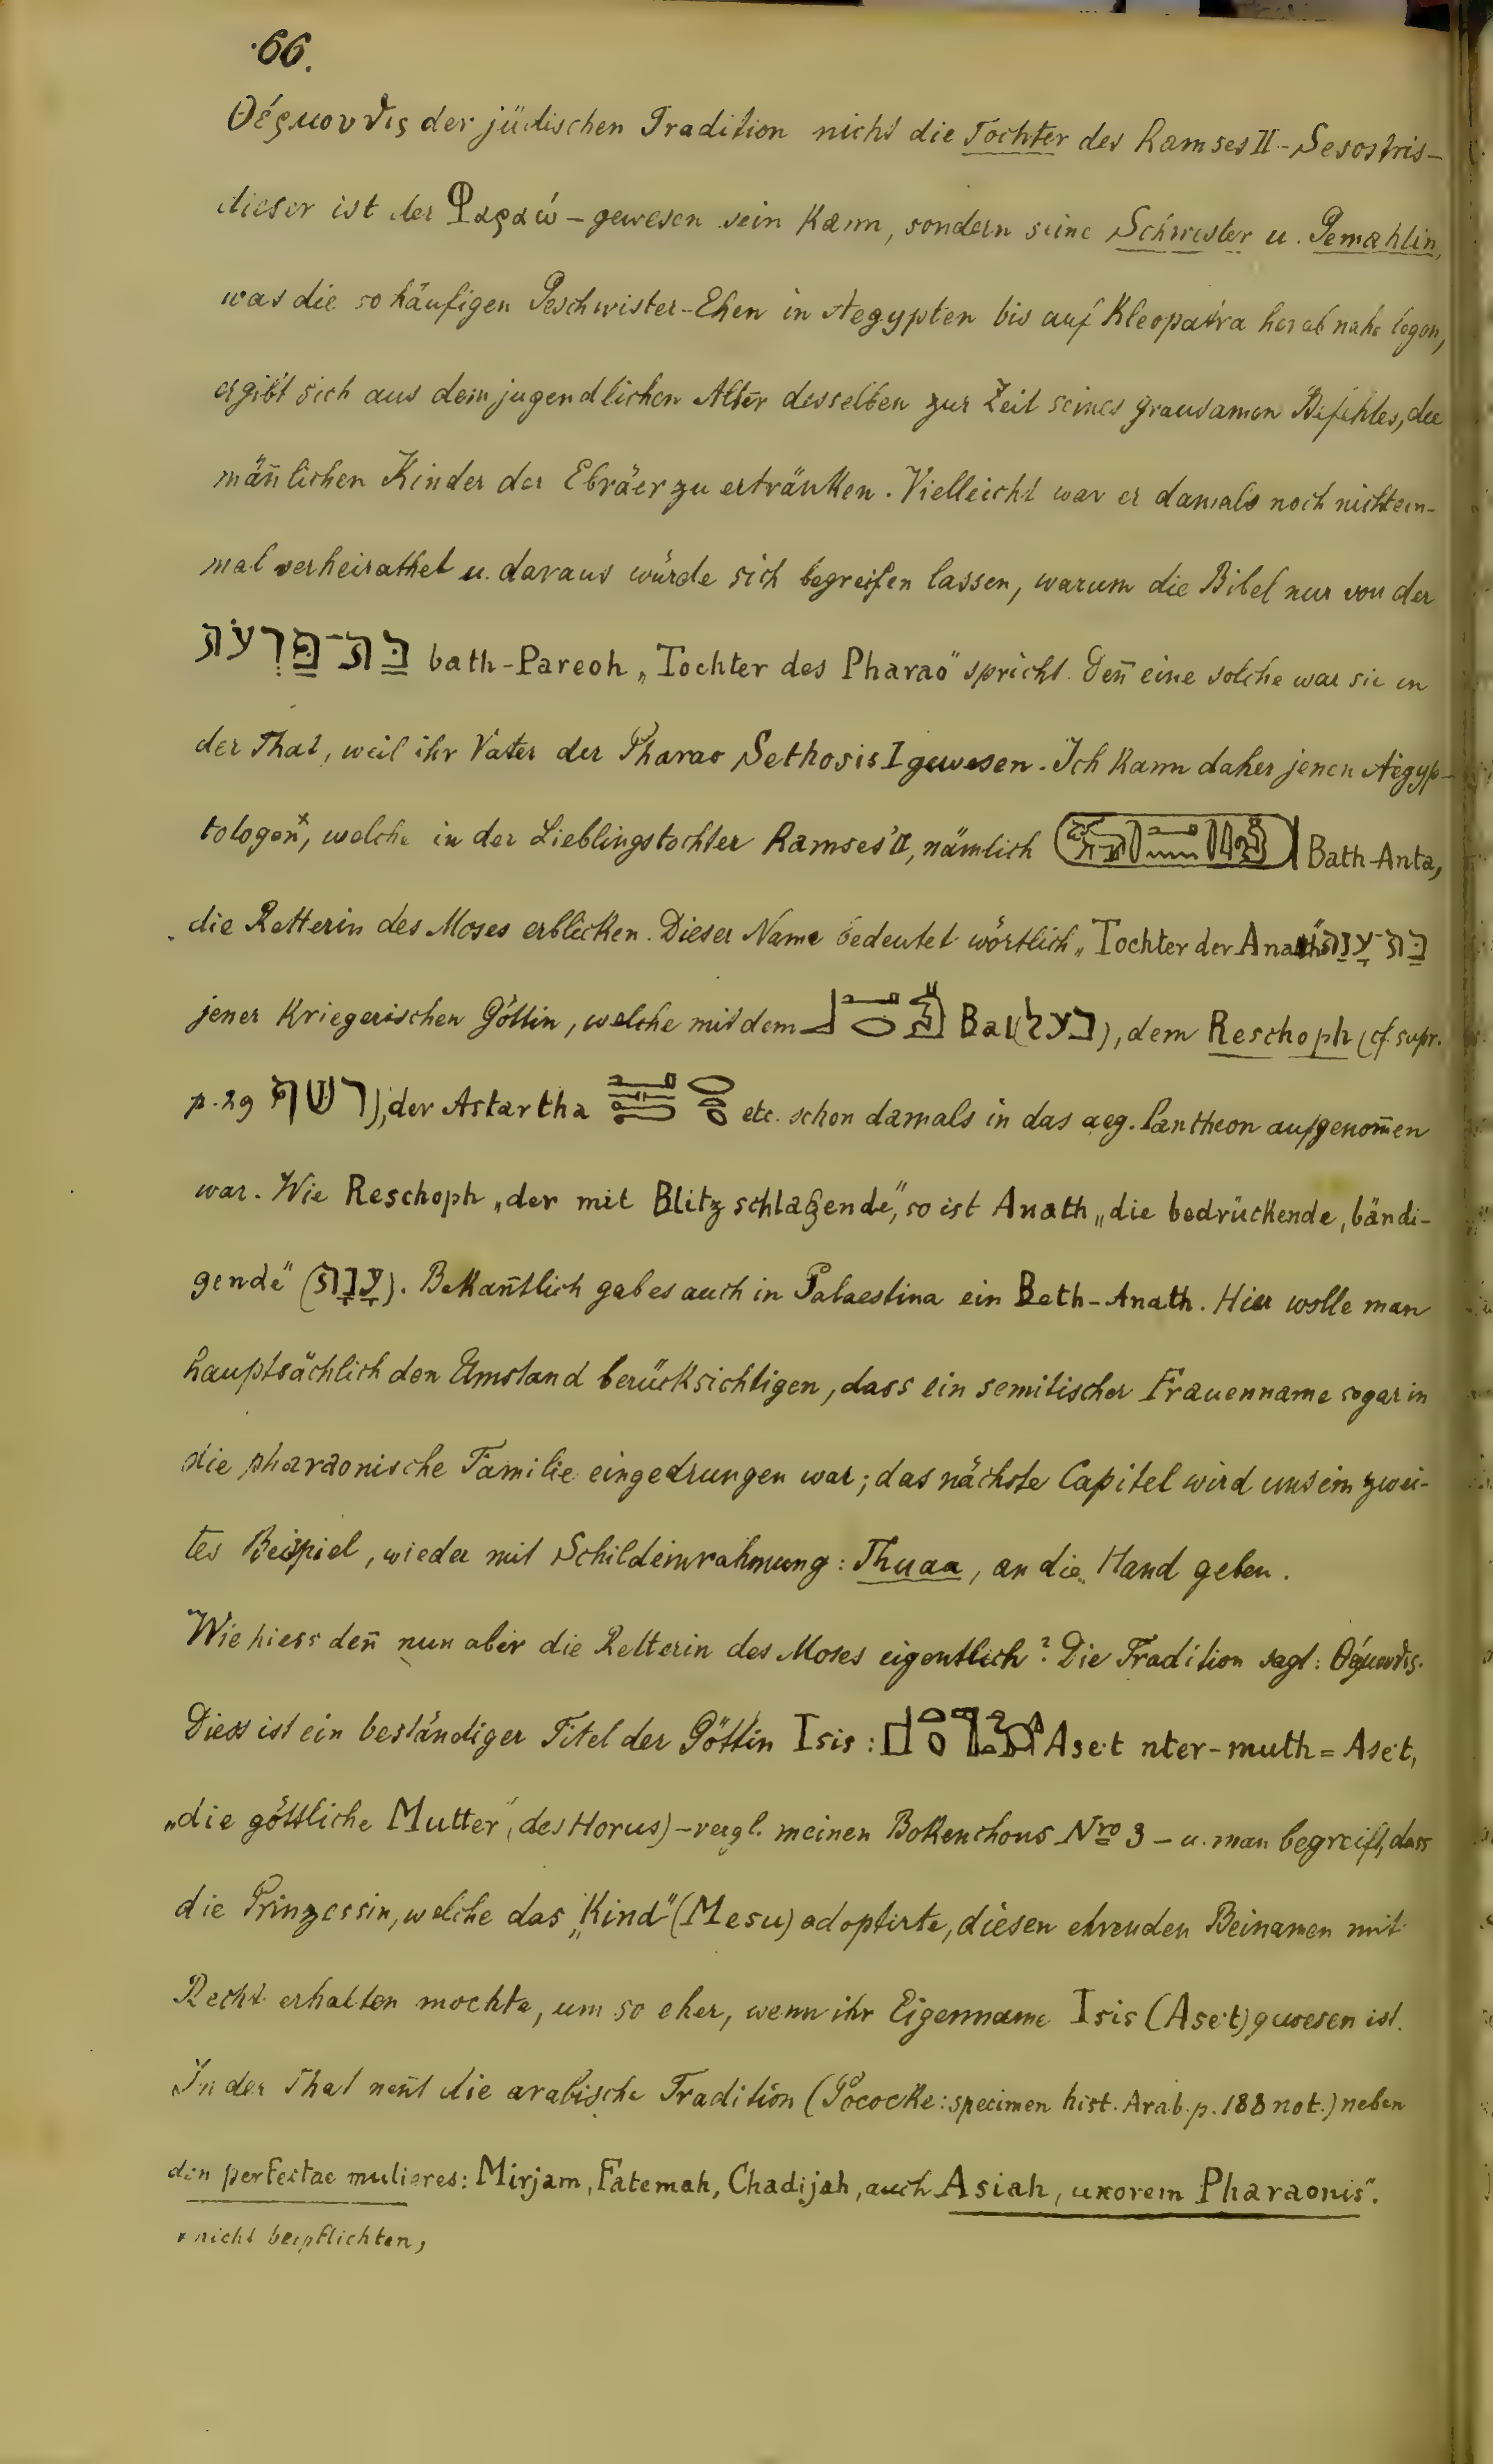 66.
Θέρμουθις der jüdischen Tradition nicht die Tochter des Ramses II - Sesostris -
dieser ist der Φαραώ - gewesen sein kann, sondern seine Schwester u. Gemahlin,
was die so häufigen Geschwister-Ehen in Aegypten bis auf Kleopatra herab nahe legen,
ergibt sich aus dem jugendlichen Alter desselben zur Zeit seines grausamen Befehles, die
män̄lichen Kinder der Ebräer zu ertränken. Vielleicht war er damals noch nicht ein-
mal verheirathet u. daraus würde sich begreifen lassen, warum die Bibel nur von der
בַּת־פַּרְעֹה bath-Pareoh „Tochter des Pharao" spricht. Den̄ eine solche war sie in
der That, weil ihr Vater der Pharao Sethosis I gewesen. Ich kann daher jenen Aegyp-
tologen×, welche in der Lieblingstochter Ramses' II, nämlich Bath-Anta,
die Retterin des Moses erblicken. Dieser Name bedeutet wörtlich „Tochter der Anath" בַּת־עֲנָת
jener kriegerischen Göttin, welche mit dem Bal (בעל), dem Reschoph (cf. supr.
p. 29 רשף), der Astartha etc. schon damals in das aeg. Pantheon aufgenom̄en
war. Wie Reschoph „der mit Blitz schlagende", so ist Anath „die bedrückende, bändi-
gende" (עֲנָת). Bekan̄tlich gab es auch in Palaestina ein Beth-Anath. Hier wolle man
hauptsächlich den Umstand berücksichtigen, dass ein semitischer Frauenname sogar in
die pharaonische Familie eingedrungen war; das nächste Capitel wird uns ein zwei-
tes Beispiel, wieder mit Schildeinrahmung: Thuaa, an die Hand geben.
Wie hiess den̄ nun aber die Retterin des Moses eigentlich? Die Tradition sagt: Θέρμουθις.
Diess ist ein beständiger Titel der Göttin Isis: Ase·t nter-muth = Ase·t,
„die göttliche Mutter" (des Horus) - vergl. meinen Bokenchons Nro 3 - u. man begreift, dass
die Prinzessin, welche das „Kind" (Mesu) adoptirte, diesen ehrenden Beinamen mit
Recht erhalten mochte, um so eher, wenn ihr Eigenname Isis (Ase·t) gewesen ist.
In der That nen̄t die arabische Tradition (Pococke: specimen hist. Arab. p. 188 not.) neben
den perfectae mulieres: Mirjam, Fatemah, Chadijah, auch Asiah, uxorem Pharaonis".
× nicht beipflichten,